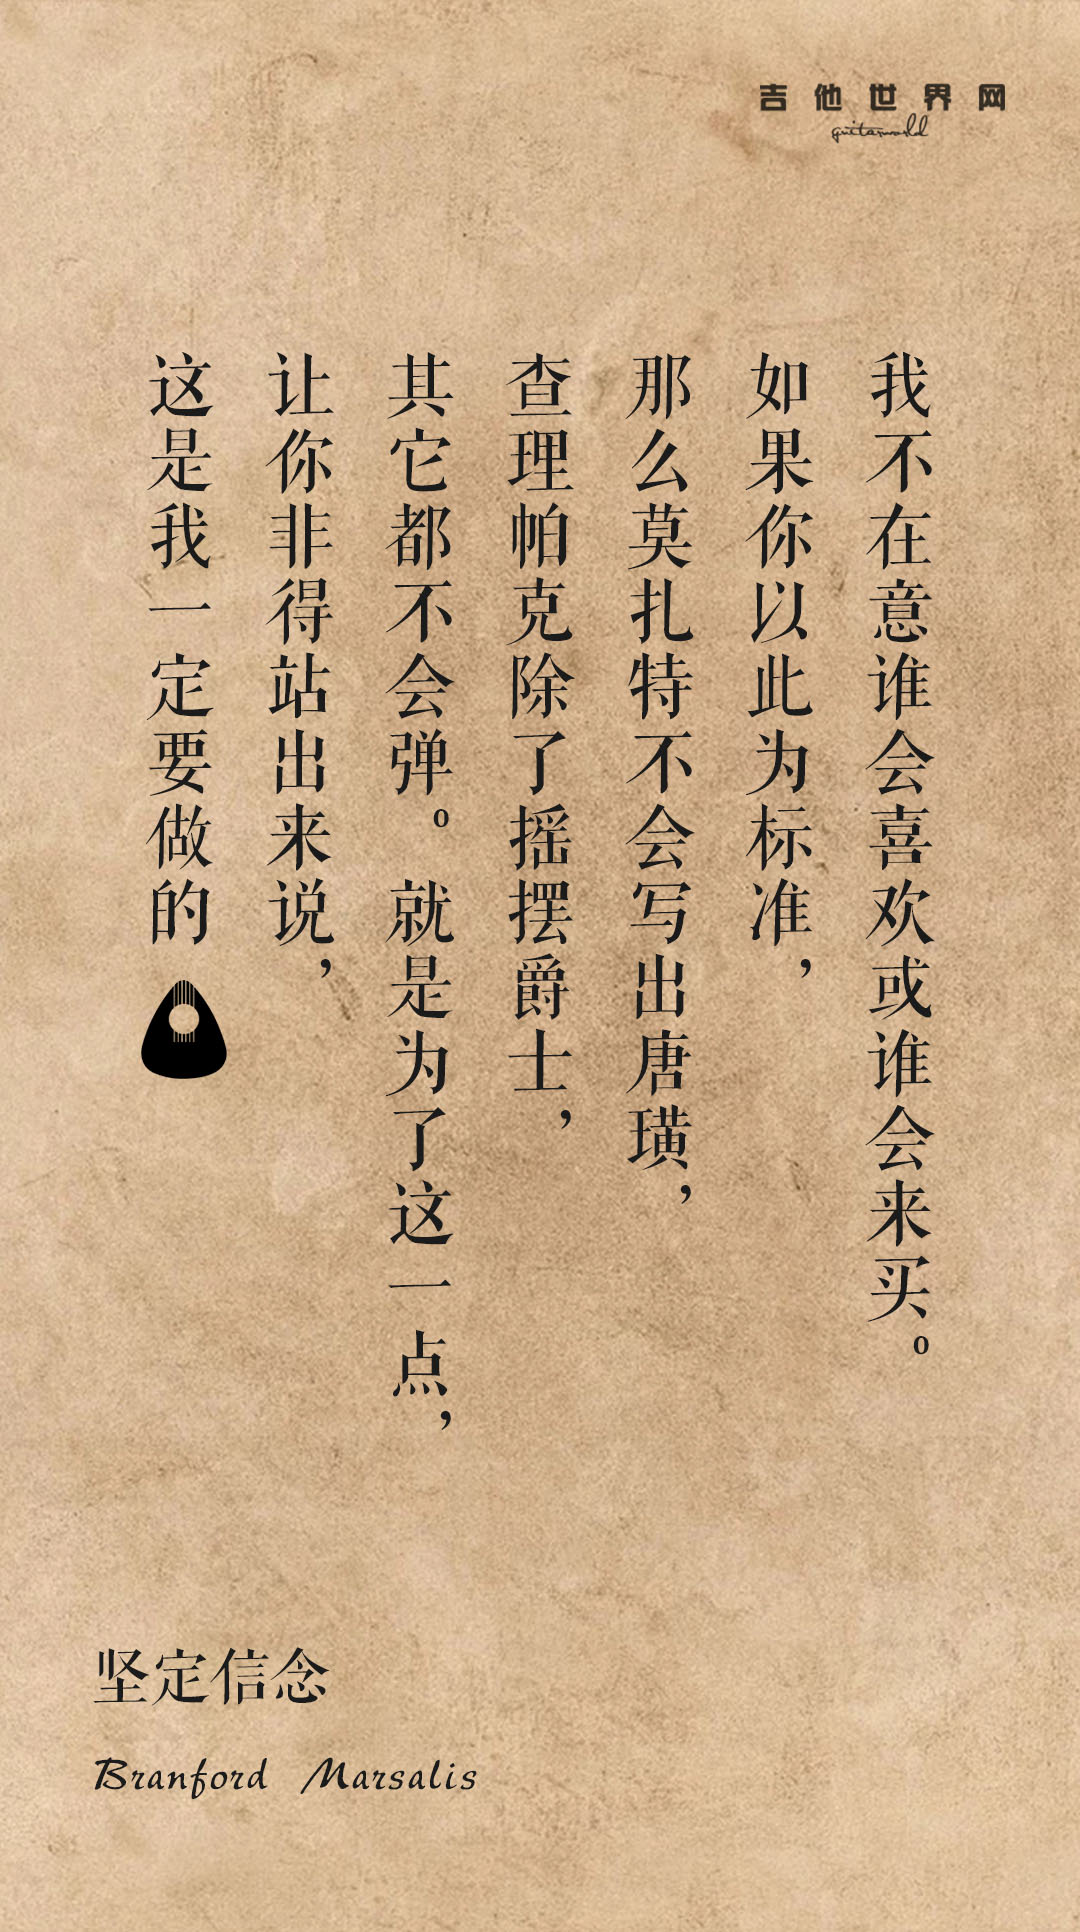 吉他世界网
guitarworld
我不在意谁会喜欢或谁会来买。
如果你以此为标准，
那么莫扎特不会写出唐璜，
查理帕克除了摇摆爵士，
其它都不会弹。就是为了这一点，
让你非得站出来说，
这是我一定要做的
坚定信念
Branford Marsalis